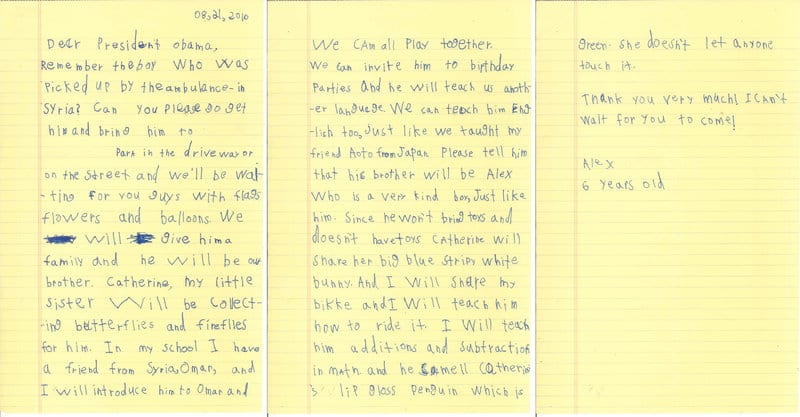 08,21,2016
Dear President obama,
Remember the boy who was
picked up by the ambulance in
Syria? Can you please go get
him and bring him to
Park in the driveway or
on the street and we'll be wai-
-ting for you guys with flags
flowers and balloons. We
will give him a
family and he will be our
brother. Catherine, my little
sister will be collect-
-ing butterflies and fireflies
for him. In my school I have
a friend from Syria, Omar, and
I will introduce him to Omar and
We can all play together.
We can invite him to birthday
parties and he will teach us anoth-
-er language. We can teach him Eng-
-lish too, Just like we taught my
friend Aoto from Japan. Please tell him
that his brother will be Alex
who is a very kind boy, Just like
him. Since he won't bring toys and
doesn't have toys Catherine will
share her big blue stripy white
bunny. And I will share my
bikke and I will teach him
how to ride it. I will teach
him additions and subtractions
in math. and he smell Catherin
's lip gloss penguin which is
green. she doesn't let anyone
touch it.
Thank you very much! I can't
wait for you to come!
Alex
6 years old